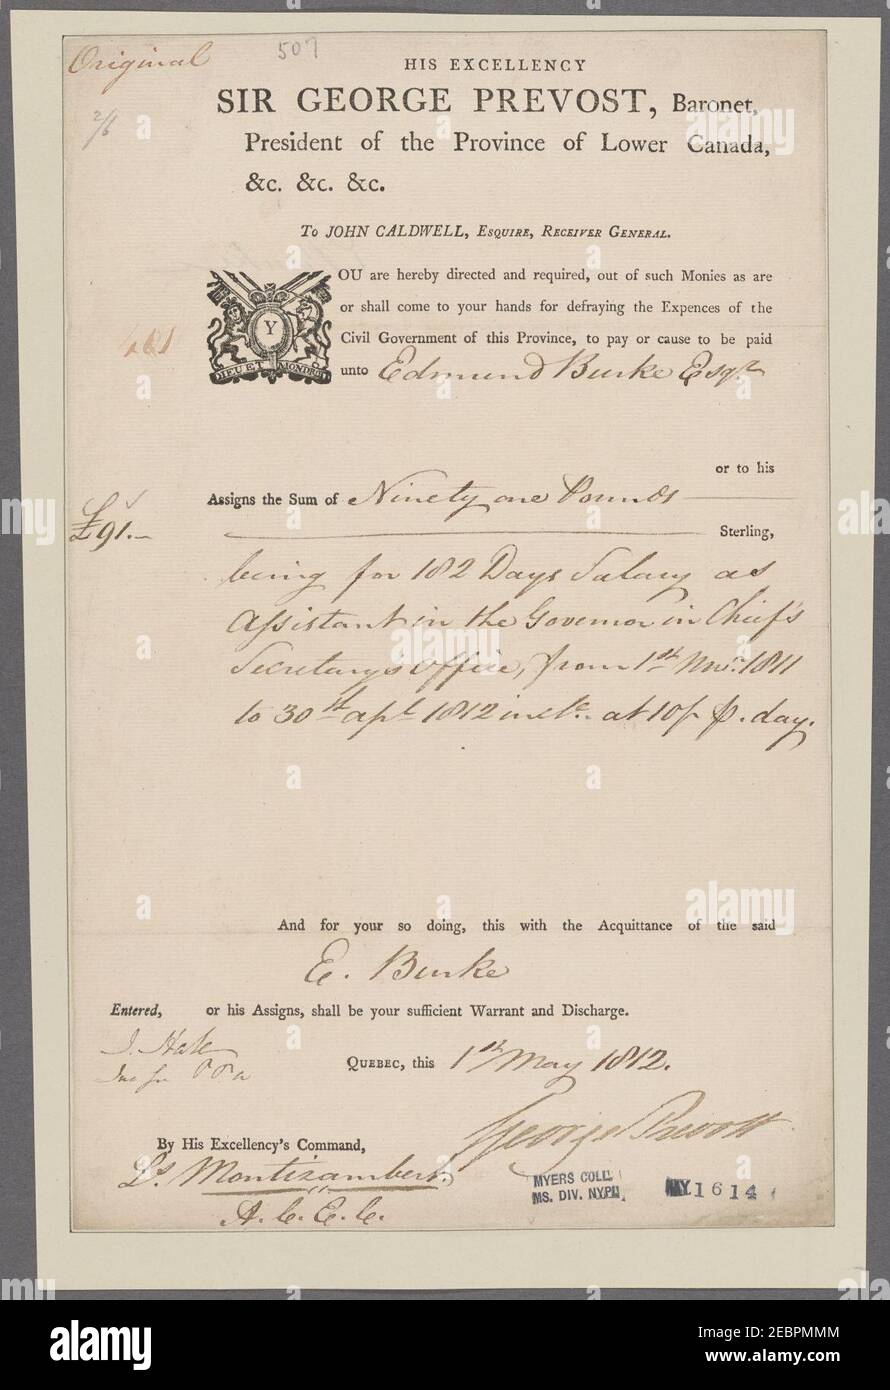 Original
507
2/6
HIS EXCELLENCY
SIR GEORGE PREVOST, Baronet,
President of the Province of Lower Canada,
&c. &c. &c.
To JOHN CALDWELL, Esquire, Receiver General.
Y
DIEU ET MON DROIT
OU are hereby directed and required, out of such Monies as are
or shall come to your hands for defraying the Expences of the
Civil Government of this Province, to pay or cause to be paid
unto Edmund Burke Esqr
or to his
Assigns the Sum of Ninety one Pounds
£91.—
Sterling,
being for 182 Days Salary as
Assistant in the Governor in Chief's
Secretary's office, from 1st Novr. 1811
to 30th apl. 1812 incle. at 10/ p. day.
And for your so doing, this with the Acquittance of the said
E. Burke
Entered,
or his Assigns, shall be your sufficient Warrant and Discharge.
J. Hale
QUEBEC, this 1st May 1812.
George Prevost
By His Excellency's Command,
Ls. Montizambert
A. C. E. C.
MYERS COLL.
MS. DIV. NYPL
MY 16 14
alamy
Image ID: 2EBPMMM
www.alamy.com